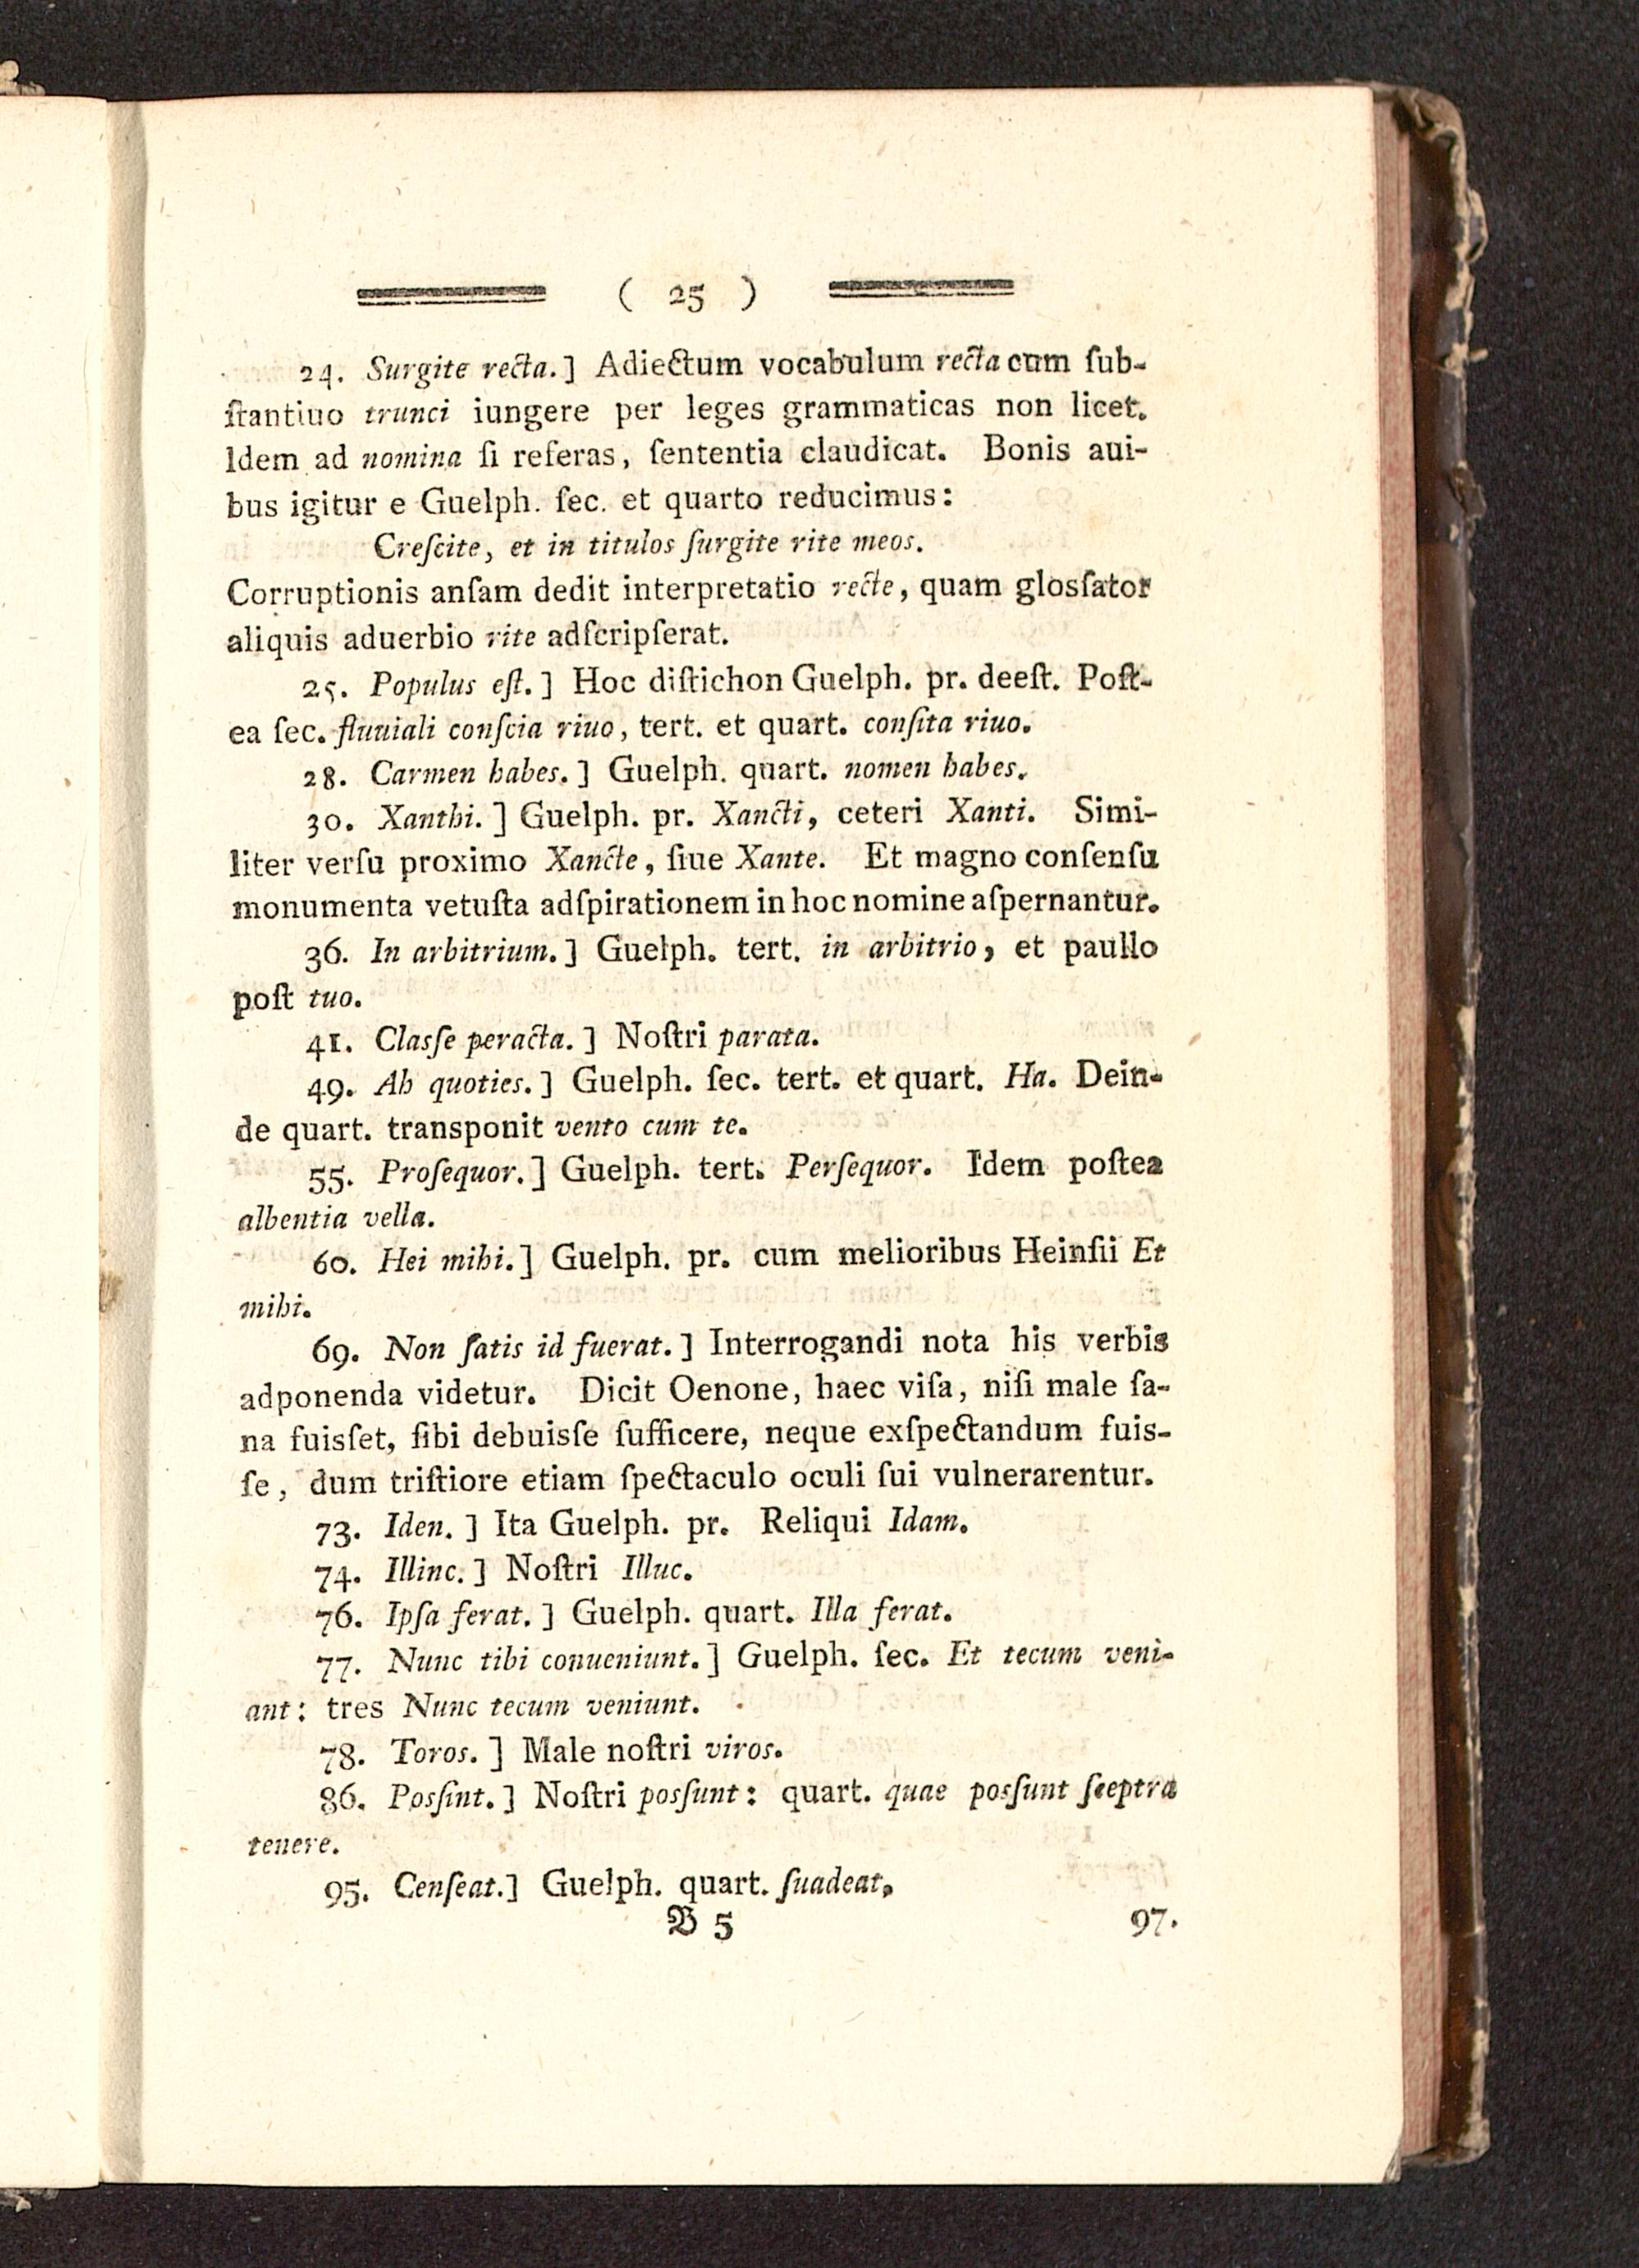 ( 25 )
24. Surgite recta.] Adiectum vocabulum recta cum ſub-
ſtantiuo trunci iungere per leges grammaticas non licet.
Idem ad nomina ſi referas, ſententia claudicat. Bonis aui-
bus igitur e Guelph. ſec. et quarto reducimus:
Creſcite, et in titulos ſurgite rite meos.
Corruptionis anſam dedit interpretatio recte, quam glosſator
aliquis aduerbio rite adſcripſerat.
25. Populus eſt.] Hoc diſtichon Guelph. pr. deeſt. Poſt-
ea ſec. fluuiali conſcia riuo, tert. et quart. conſita riuo.
28. Carmen habes.] Guelph. quart. nomen habes.
30. Xanthi.] Guelph. pr. Xancti, ceteri Xanti. Simi-
liter verſu proximo Xancte, ſiue Xante. Et magno conſenſu
monumenta vetuſta adſpirationem in hoc nomine aſpernantur.
36. In arbitrium.] Guelph. tert. in arbitrio, et paullo
poſt tuo.
41. Classe peracta.] Noſtri parata.
49. Ah quoties.] Guelph. ſec. tert. et quart. Ha. Dein-
de quart. transponit vento cum te.
55. Proſequor.] Guelph. tert. Perſequor. Idem poſtea
albentia vella.
60. Hei mihi.] Guelph. pr. cum melioribus Heinſii Et
mihi.
69. Non ſatis id fuerat.] Interrogandi nota his verbis
adponenda videtur. Dicit Oenone, haec viſa, niſi male ſa-
na fuisſet, ſibi debuisſe ſufficere, neque exſpectandum fuis-
ſe, dum triſtiore etiam ſpectaculo oculi ſui vulnerarentur.
73. Iden.] Ita Guelph. pr. Reliqui Idam.
74. Illinc.] Noſtri Illuc.
76. Ipſa ferat.] Guelph. quart. Illa ferat.
77. Nunc tibi conueniunt.] Guelph. ſec. Et tecum veni-
ant: tres Nunc tecum veniunt.
78. Toros.] Male noſtri viros.
86. Posſint.] Noſtri posſunt: quart. quae posſunt ſceptra
tenere.
95. Cenſeat.] Guelph. quart. ſuadeat.
B 5 97.